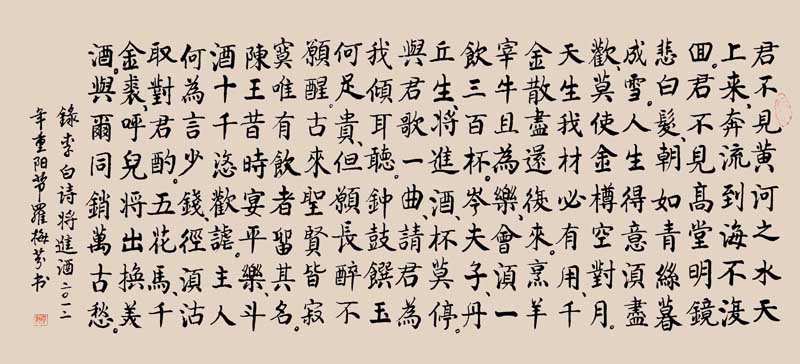 君不見黃河之水天
上來、奔流到海不復
囬。君不見高堂明鏡
悲白髮、朝如青絲暮
成雪。人生得意須盡
歡、莫使金樽空對月。
天生我材必有用、千
金散盡還復來。烹羊
宰牛且為樂、會須一
飲三百杯。岑夫子、丹
丘生、將進酒、杯莫停。
與君歌一曲、請君為
我傾耳聽。鈡鼓饌玉
何足貴、但願長醉不
願醒。古來聖賢皆寂
寞唯有飲者留其名。
陳王昔時宴平樂、斗
酒十千恣歡謔。主人
何為言少錢、徑須沽
取對君酌。五花馬、千
金裘、呼兒將出換美
酒。與爾同銷萬古愁。
錄李白诗將進酒二〇一二
年重阳节羅梅芬书